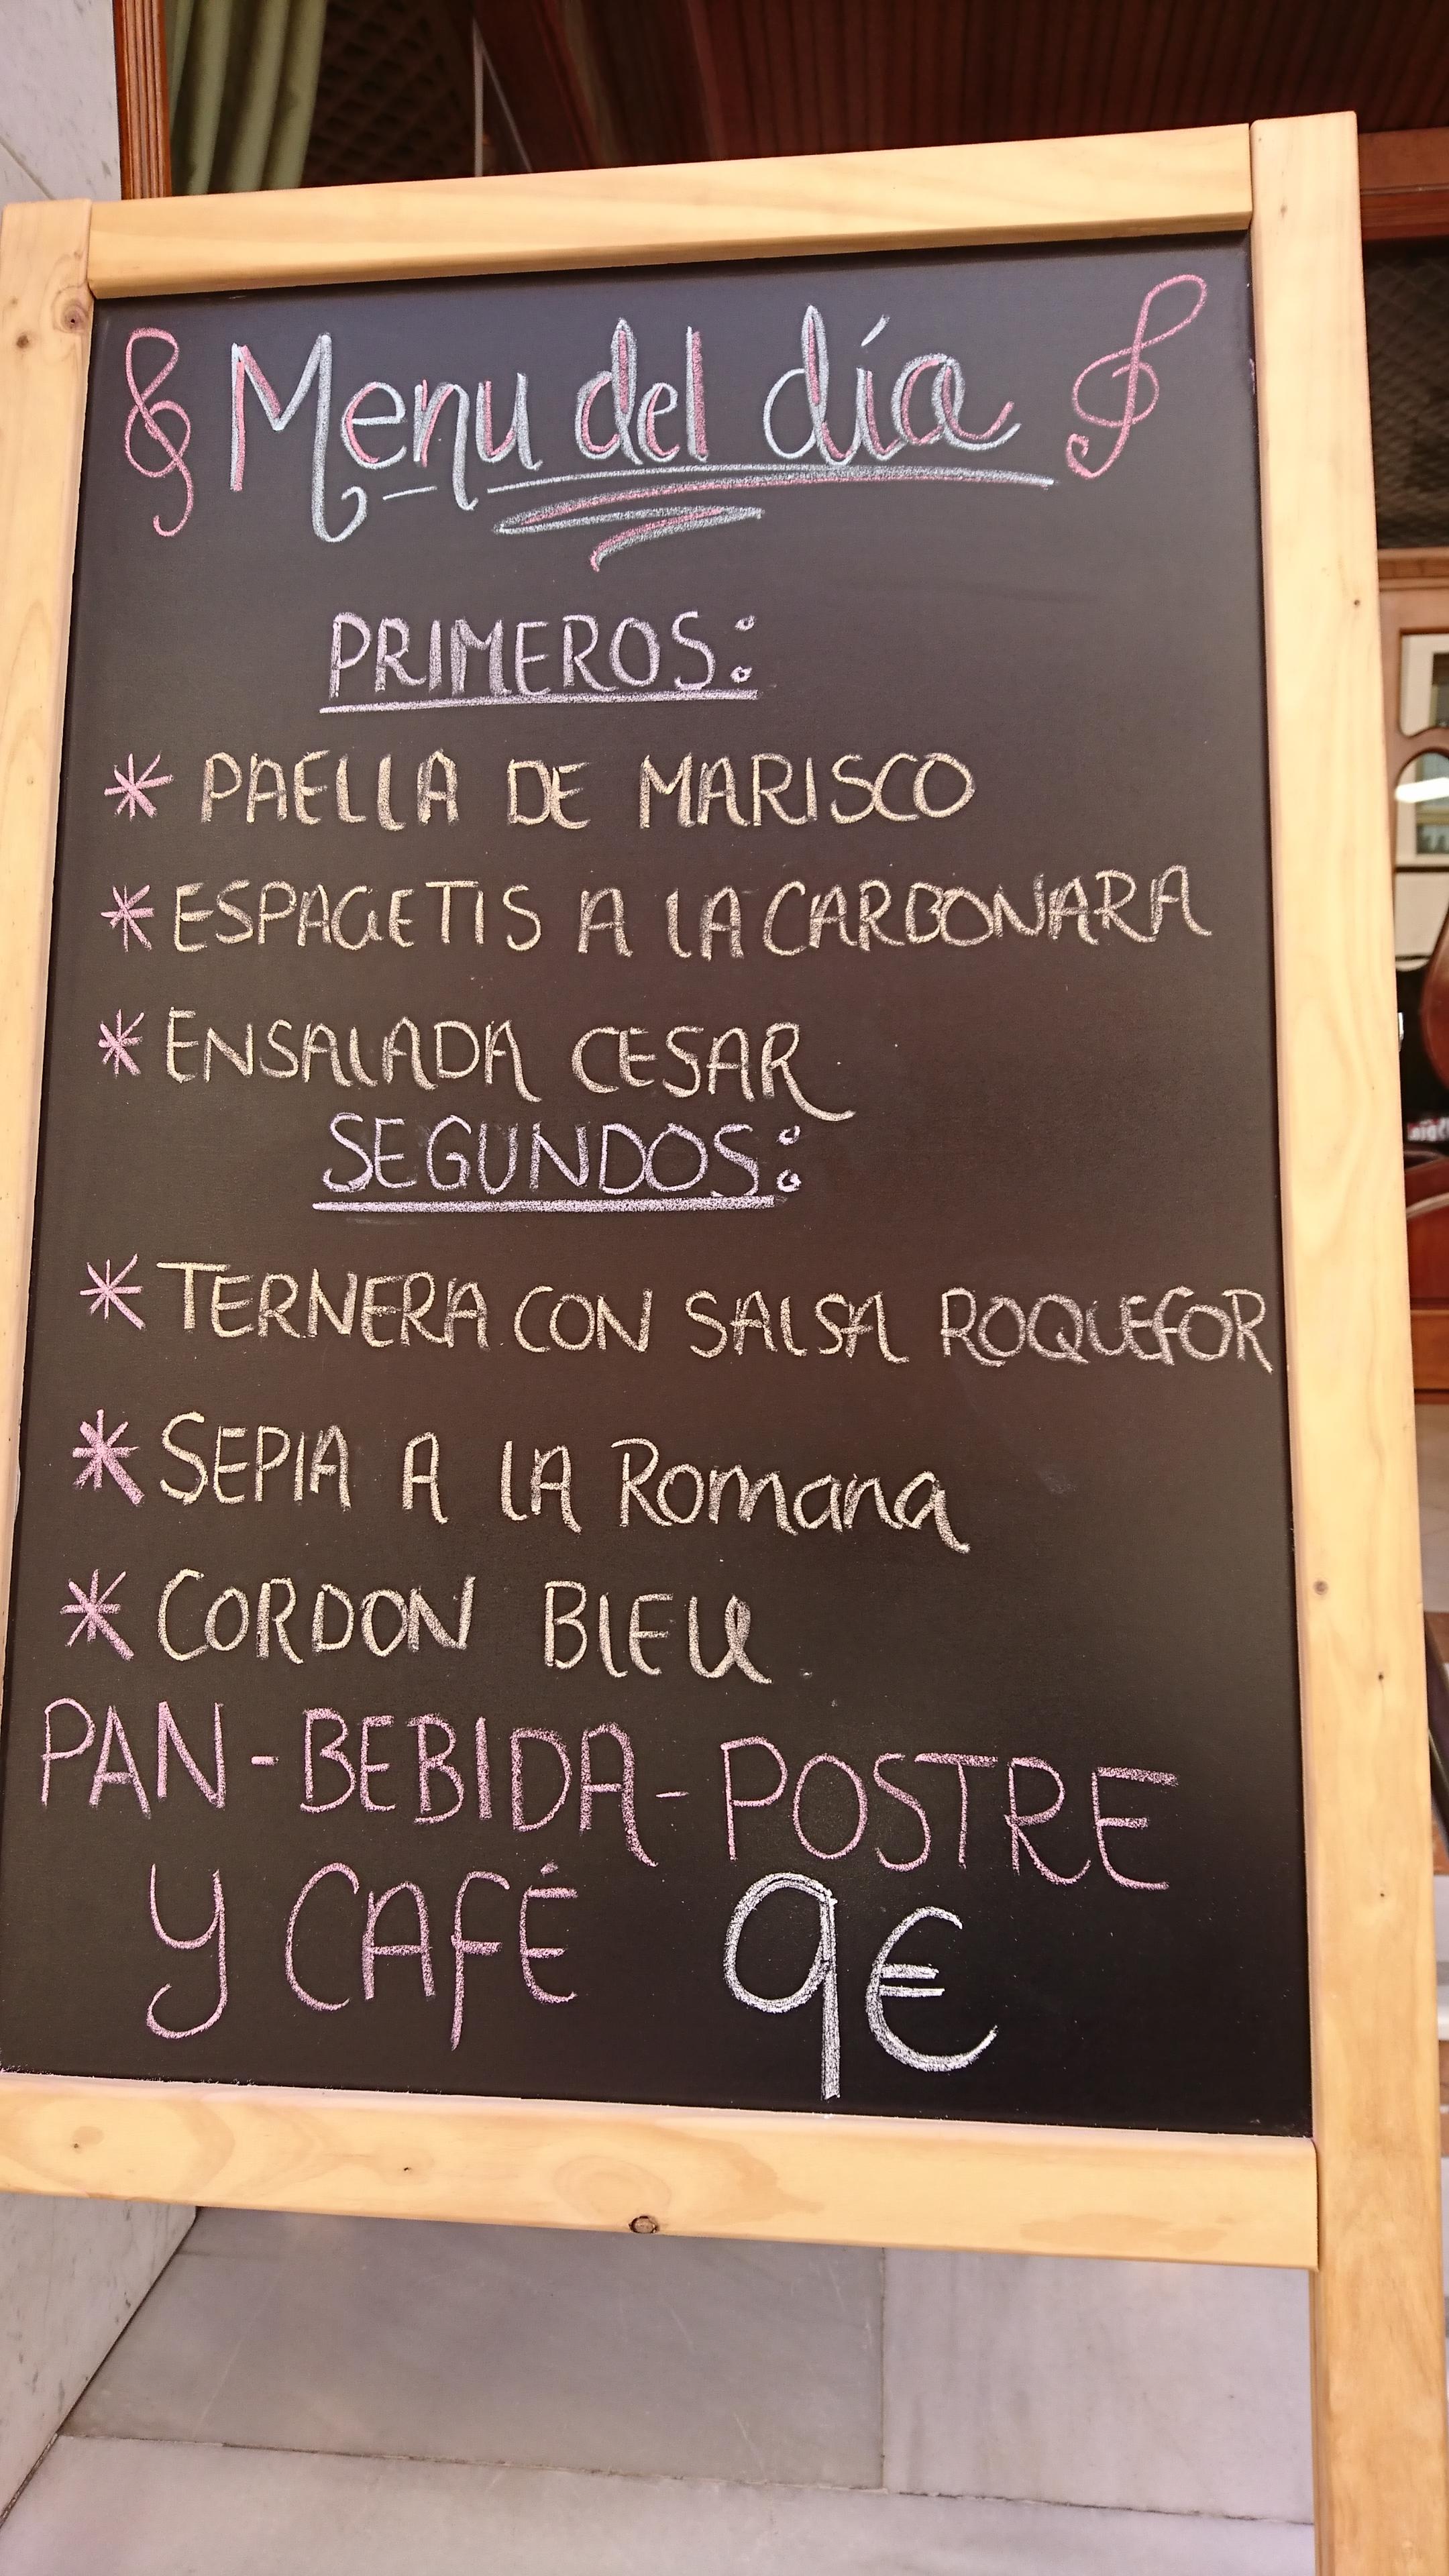 Menu del día
PRIMEROS:
* PAELLA DE MARISCO
* ESPAGETIS A LA CARBONARA
* ENSALADA CESAR
SEGUNDOS:
* TERNERA CON SALSA ROQUEFOR
* SEPIA A LA Romana
* CORDON BLEU
PAN-BEBIDA-POSTRE
Y CAFÉ 9€